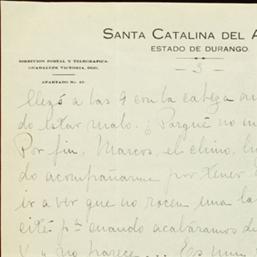 SANTA CATALINA DEL A
ESTADO DE DURANGO.
DIRECCION POSTAL Y TELEGRAFICA:
GUADALUPE VICTORIA, DGO.
APARTADO No. 
– 3 –
llegó a las 9 con la cabeza
do estar malo. ¿Porqué no
Por fin, Marcos, el chino,
do acompañarme por tener
ir a ver que no rocen una la
cuando acabáramos d
no parece